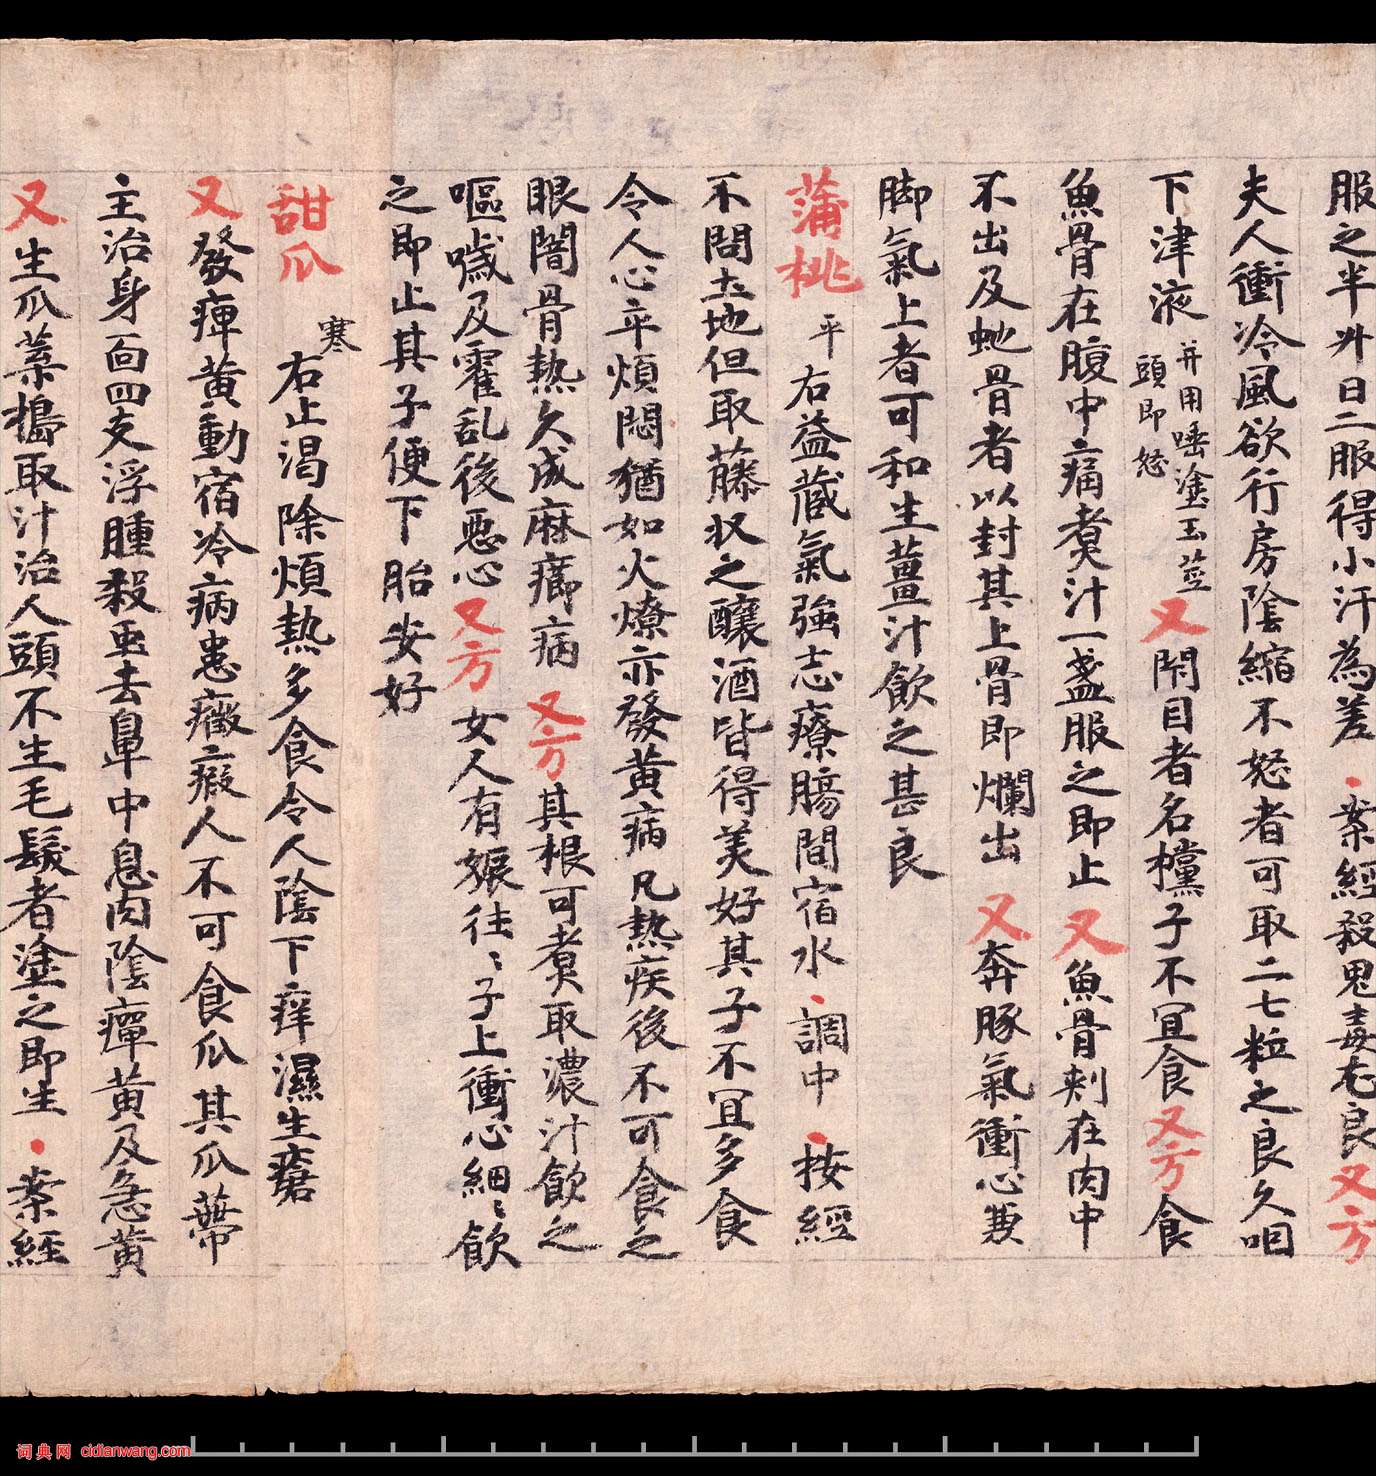 服之半升日二服得小汗為差・案經殺鬼毒尤良又方
夫人衝冷風欲行房陰縮不怒者可取二七粒之良久咽
下津液并用唾塗玉莖頭即怒又閇目者名欓子不宜食又方食
魚骨在腹中痛煑汁一盞服之即止又魚骨刾在肉中
不出及虵骨者以封其上骨即爛出又奔豚氣衝心兼
脚氣上者可和生薑汁飲之甚良
蒲桃平右益蔵氣強志療腸間宿水・調中・按經
不問土地但取藤収之釀酒皆得美好其子不宜多食
令人心卒煩悶猶如火燎亦發黃病凡熱疾後不可食之
眼闇骨熱久成麻癤病又方其根可煑取濃汁飲之
嘔噦及霍乱後惡心又方女人有娠往〻子上衝心細〻飲
之即止其子便下胎安好
甜瓜寒右止渴除煩熱多食令人陰下痒濕生瘡
又發癉黃動宿冷病患癥瘕人不可食瓜其瓜蔕
主治身面四支浮腫殺蟲去鼻中息肉陰癉黃及急黃
又生瓜葉搗取汁治人頭不生毛髮者塗之即生・案經
词典网 cidianwang.com